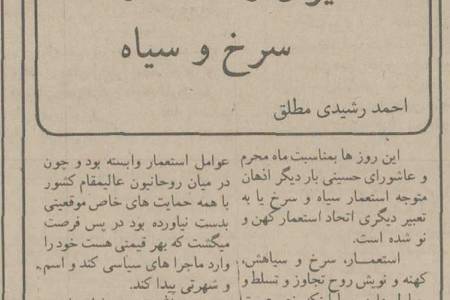 سرخ و سیاه
احمد رشیدی مطلق
این روز ها بمناسبت ماه محرم
و عاشورای حسینی بار دیگر اذهان
متوجه استعمار سیاه و سرخ یا به
تعبیر دیگری اتحاد استعمار کهن و
نو شده است.
استعمار، سرخ و سیاهش،
کهنه و نویش روح تجاوز و تسلط و
عوامل استعمار وابسته بود و چون
در میان روحانیون عالیمقام کشور
با همه حمایت های خاص موقعیتی
بدست نیاورده بود در پس فرصت
میگشت که بهر قیمتی هست خود را
وارد ماجرا های سیاسی کند و اسم
و شهرتی پیدا کند.